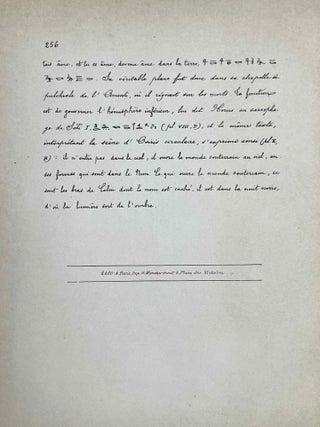 256
tois âme, et tu es âme, devenu âme dans la terre,
Sa véritable place fut donc dans sa chapelle sé-
pulchrale de l'Ament, où il régnait sur les morts. Sa fonction
est de gouverner l'hémisphère inférieur, lui dit Horus au sarcopha-
ge de Séti I, (pl VIII, B), et le même texte,
interprétant la scène d'Osiris circulaire, s'exprime ainsi (pl X,
B) : il n'entre pas dans le ciel, il ouvre le monde souterrain au ciel, en
ses formes qui sont dans le Nun. Ce qui ouvre le monde souterrain, ce
sont les bras de Celui dont le nom est caché, il est dans la nuit noire,
d'où la lumière sort de l'ombre.
à Paris, Imp.